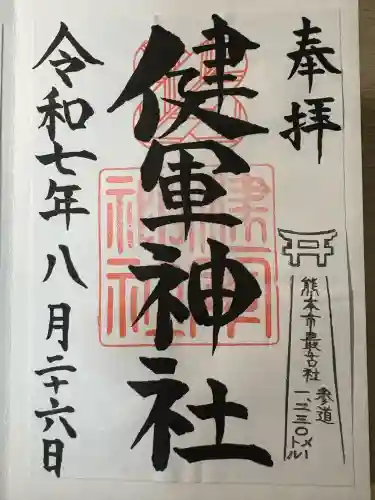 奉拝
熊本市最古社
参道
一、二三〇メートル
健軍神社
健軍
神社
令和七年八月二十六日